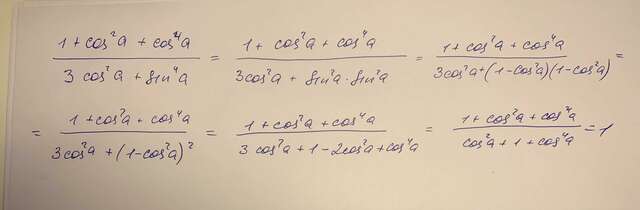 (1 + cos²a + cos⁴a) / (3 cos²a + sin⁴a) = (1 + cos²a + cos⁴a) / (3cos²a + sin²a · sin²a) = (1 + cos²a + cos⁴a) / (3cos²a + (1 - cos²a)(1 - cos²a)) =
= (1 + cos²a + cos⁴a) / (3cos²a + (1 - cos²a)²) = (1 + cos²a + cos⁴a) / (3 cos²a + 1 - 2cos²a + cos⁴a) = (1 + cos²a + cos⁴a) / (cos²a + 1 + cos⁴a) = 1